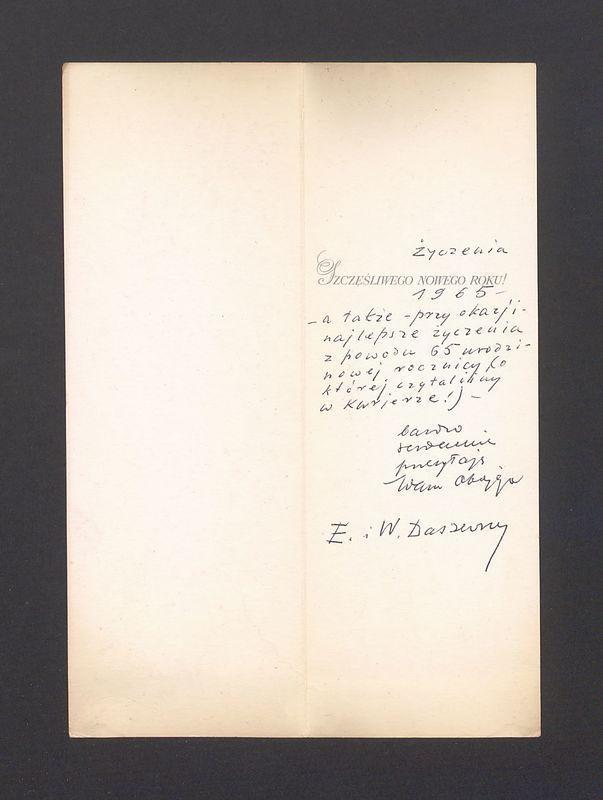 Życzenia
SZCZĘŚLIWEGO NOWEGO ROKU!
1965 -
- a także - przy okazji -
najlepsze życzenia
z powodu 65 urodzi-
nowej rocznicy (o
której czytaliśmy
w Kurjerze!) -
bardzo
serdecznie
przesyłają
Wam Obojga
E. i W. Daszewscy